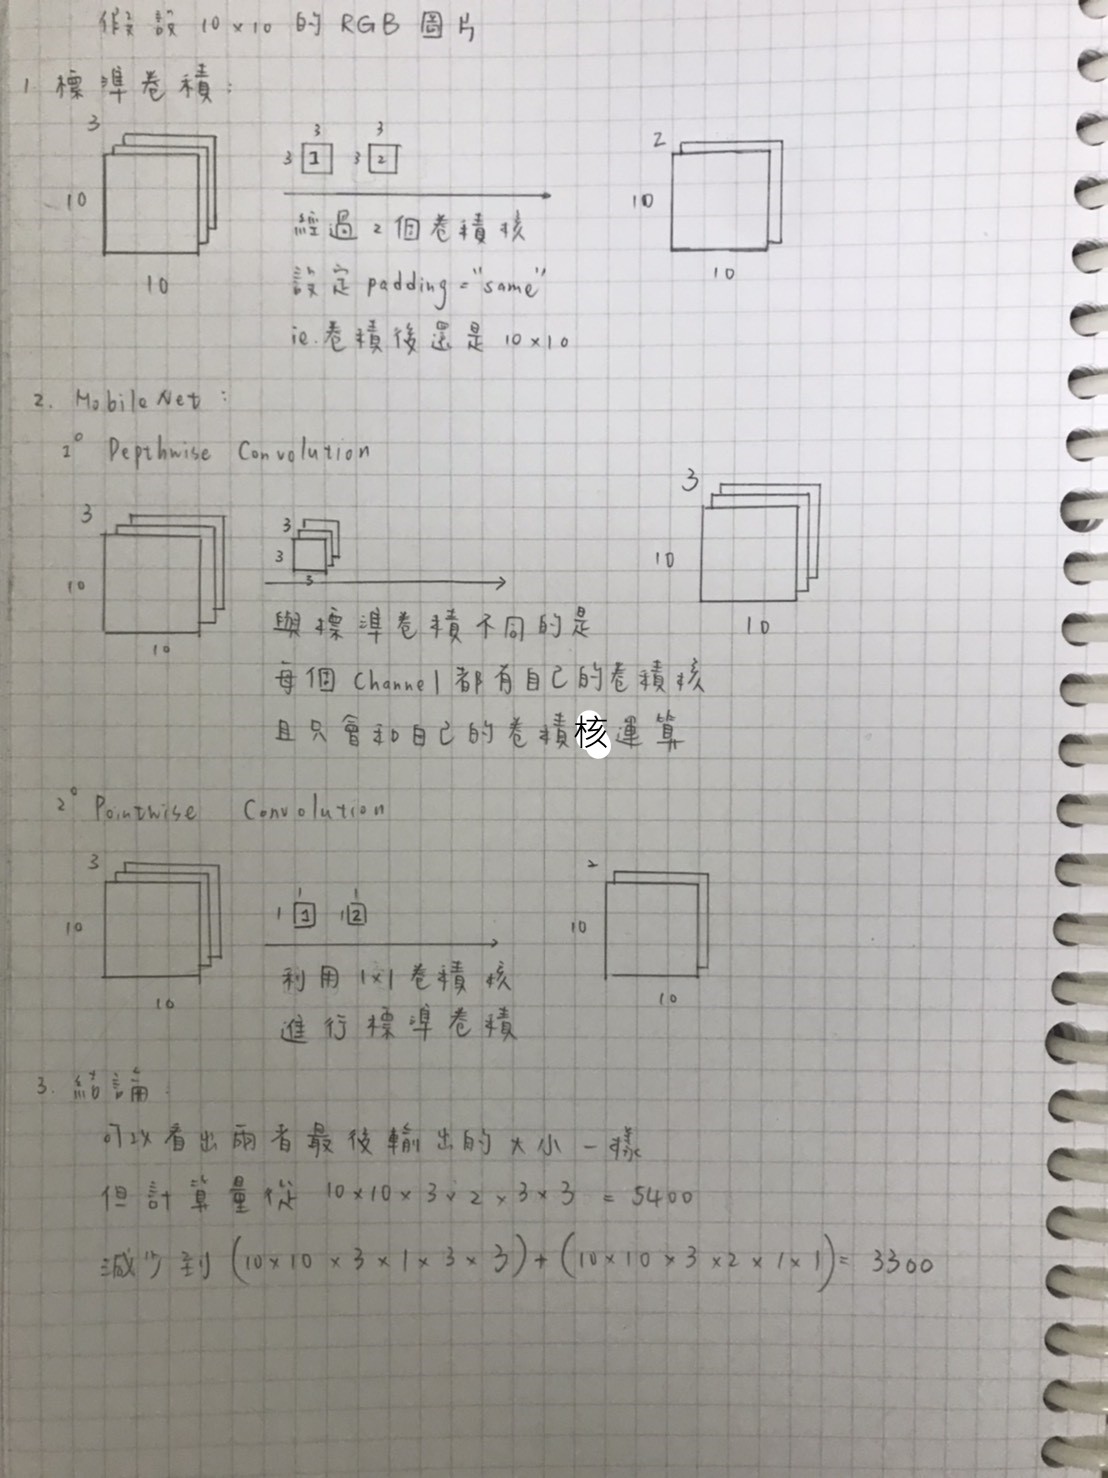 假設 10×10 的 RGB 圖片
1 標準卷積:
3
10
10
3 3
3 1 3 2
經過 2 個卷積核
設定 padding = "same"
ie. 卷積後還是 10×10
2
10
10
2. MobileNet:
1° Depthwise Convolution
3
10
10
3
3
3
與標準卷積不同的是
每個 Channel 都有自己的卷積核
且只會和自己的卷積核運算
3
10
10
2° Pointwise Convolution
3
10
10
1 1
1 1 1 2
利用 1×1 卷積核
進行標準卷積
2
10
10
3. 結論
可以看出兩者最後輸出的大小一樣
但計算量從 10×10×3×2×3×3 = 5400
減少到 (10×10×3×1×3×3)+(10×10×3×2×1×1)= 3300